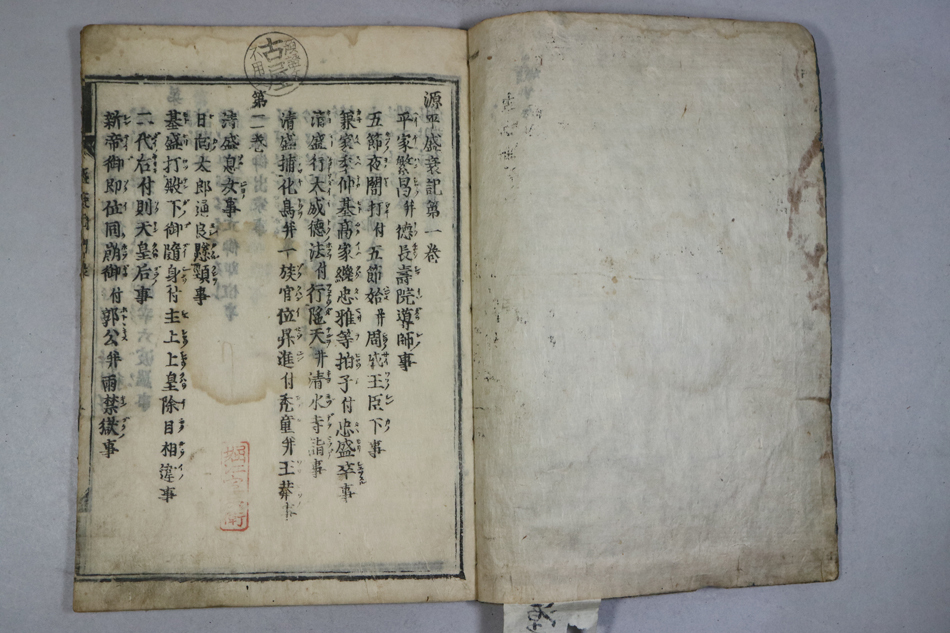 源平盛衰記第一巻
平家繁昌并徳長壽院導師事
五節夜闇打付五節始并周成王臣下事
兼家季仲基高家継忠雅等拍子付忠盛卒事
清盛行大威徳法付行陀天并清水寺詣事
清盛捕化鳥并一族官位昇進付禿童并王莽事
第二巻
清盛息女事
日向太郎通良懸頸事
基盛打殿下御随身付主上上皇除目相違事
二代后付則天皇后事
新帝御即位同崩御付郭公并雨禁獄事
古
不用